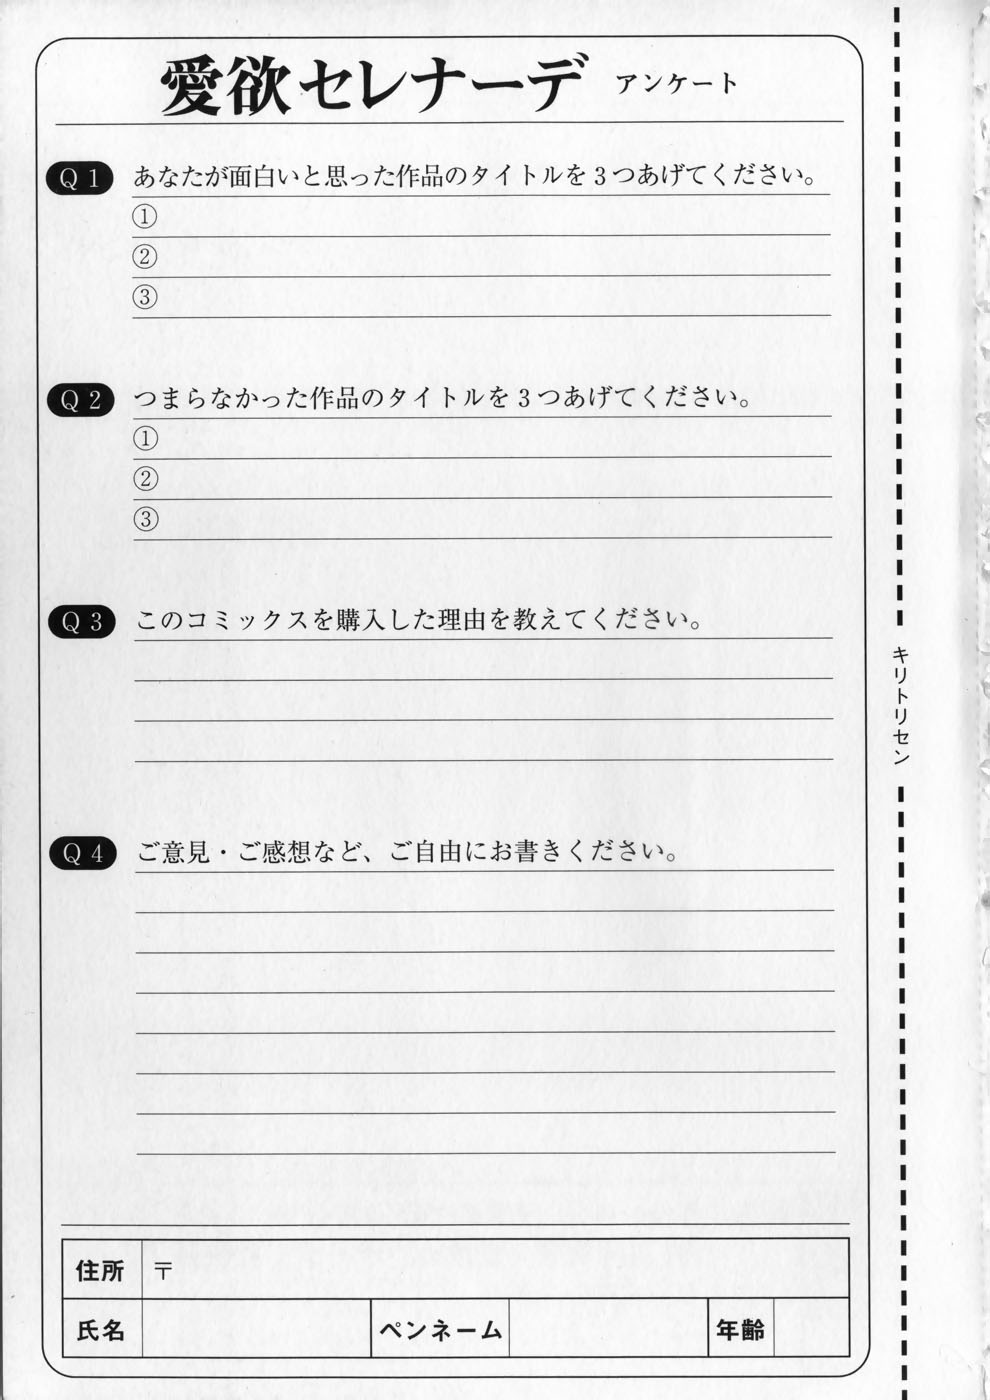 愛欲セレナーデ アンケート
Q1 あなたが面白いと思った作品のタイトルを3つあげてください。
①
②
③
Q2 つまらなかった作品のタイトルを3つあげてください。
①
②
③
Q3 このコミックスを購入した理由を教えてください。
Q4 ご意見・ご感想など、ご自由にお書きください。
住所 〒
氏名 ペンネーム 年齢
キリトリセン